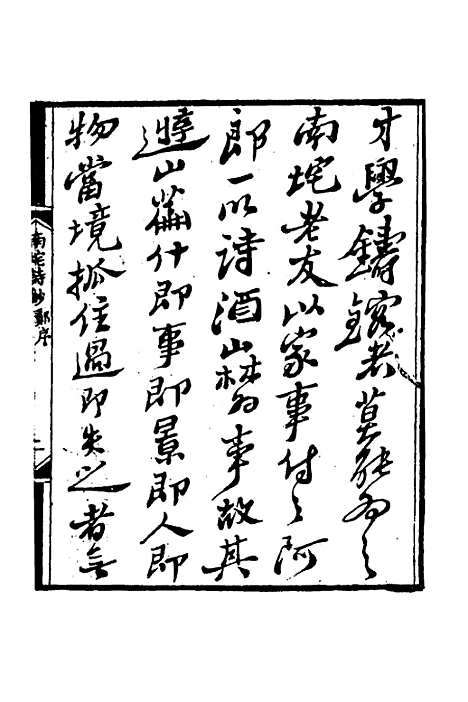 才學鑄鎔者莫能為之
南垞老友以家事付之阿
郎一以詩酒山林為事故其
遊山篇什即事即景即人即
物當境抓住過即失之者無
南垞詩鈔鄭序